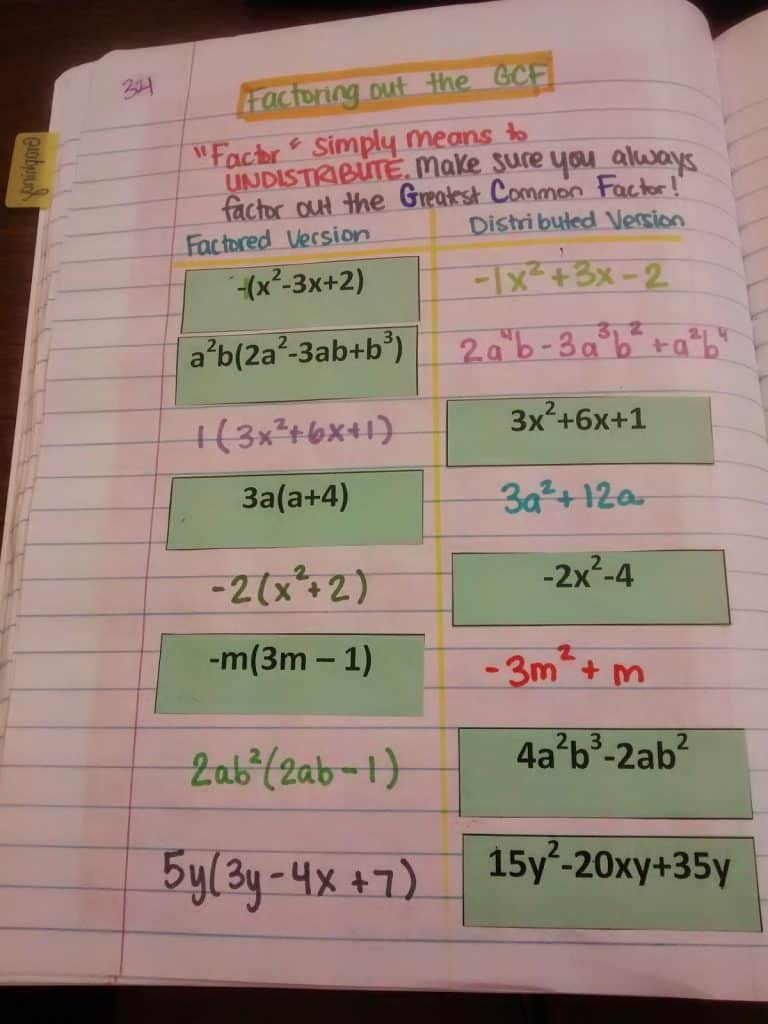 34
Factoring out the GCF
"Factor" simply means to
UNDISTRIBUTE. Make sure you always
factor out the Greatest Common Factor!
Factored Version
Distributed Version
-(x²-3x+2)
-1x²+3x-2
a²b(2a²-3ab+b³)
2a⁴b-3a³b²+a²b⁴
1(3x²+6x+1)
3x²+6x+1
3a(a+4)
3a²+12a
-2(x²+2)
-2x²-4
-m(3m – 1)
-3m²+m
2ab²(2ab-1)
4a²b³-2ab²
5y(3y-4x+7)
15y²-20xy+35y